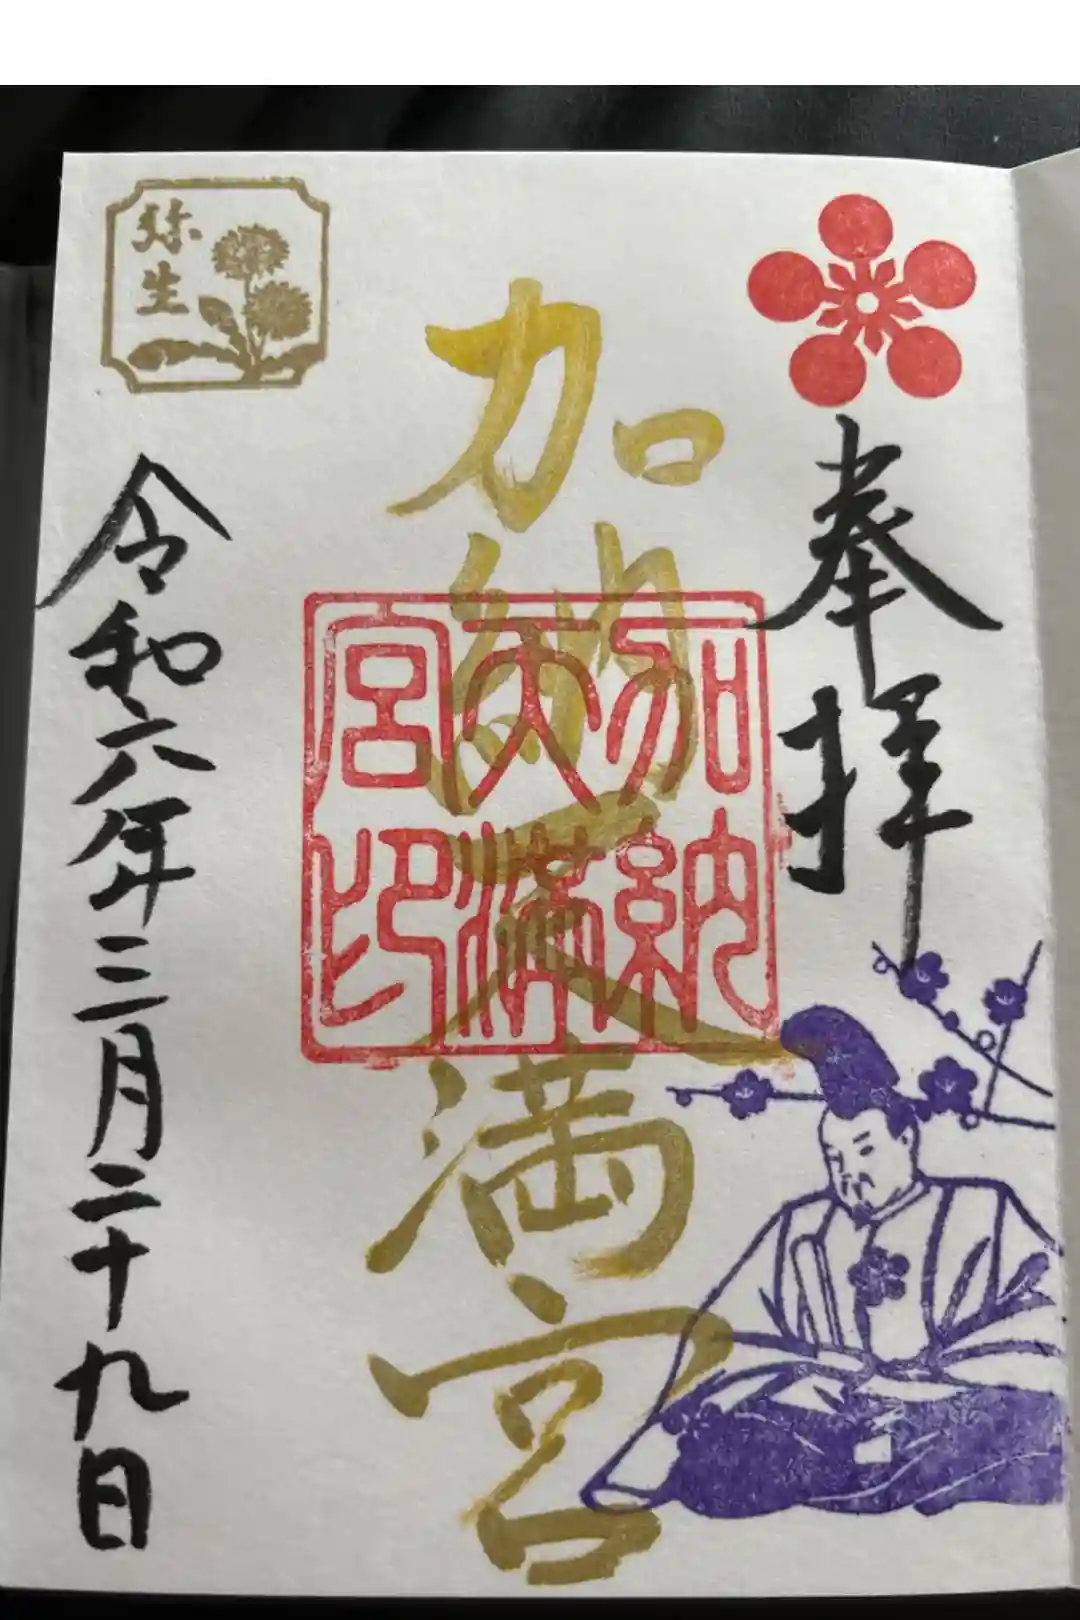 奉拝
加納天満宮
加納
天満
宮印
弥生
令和六年三月二十九日